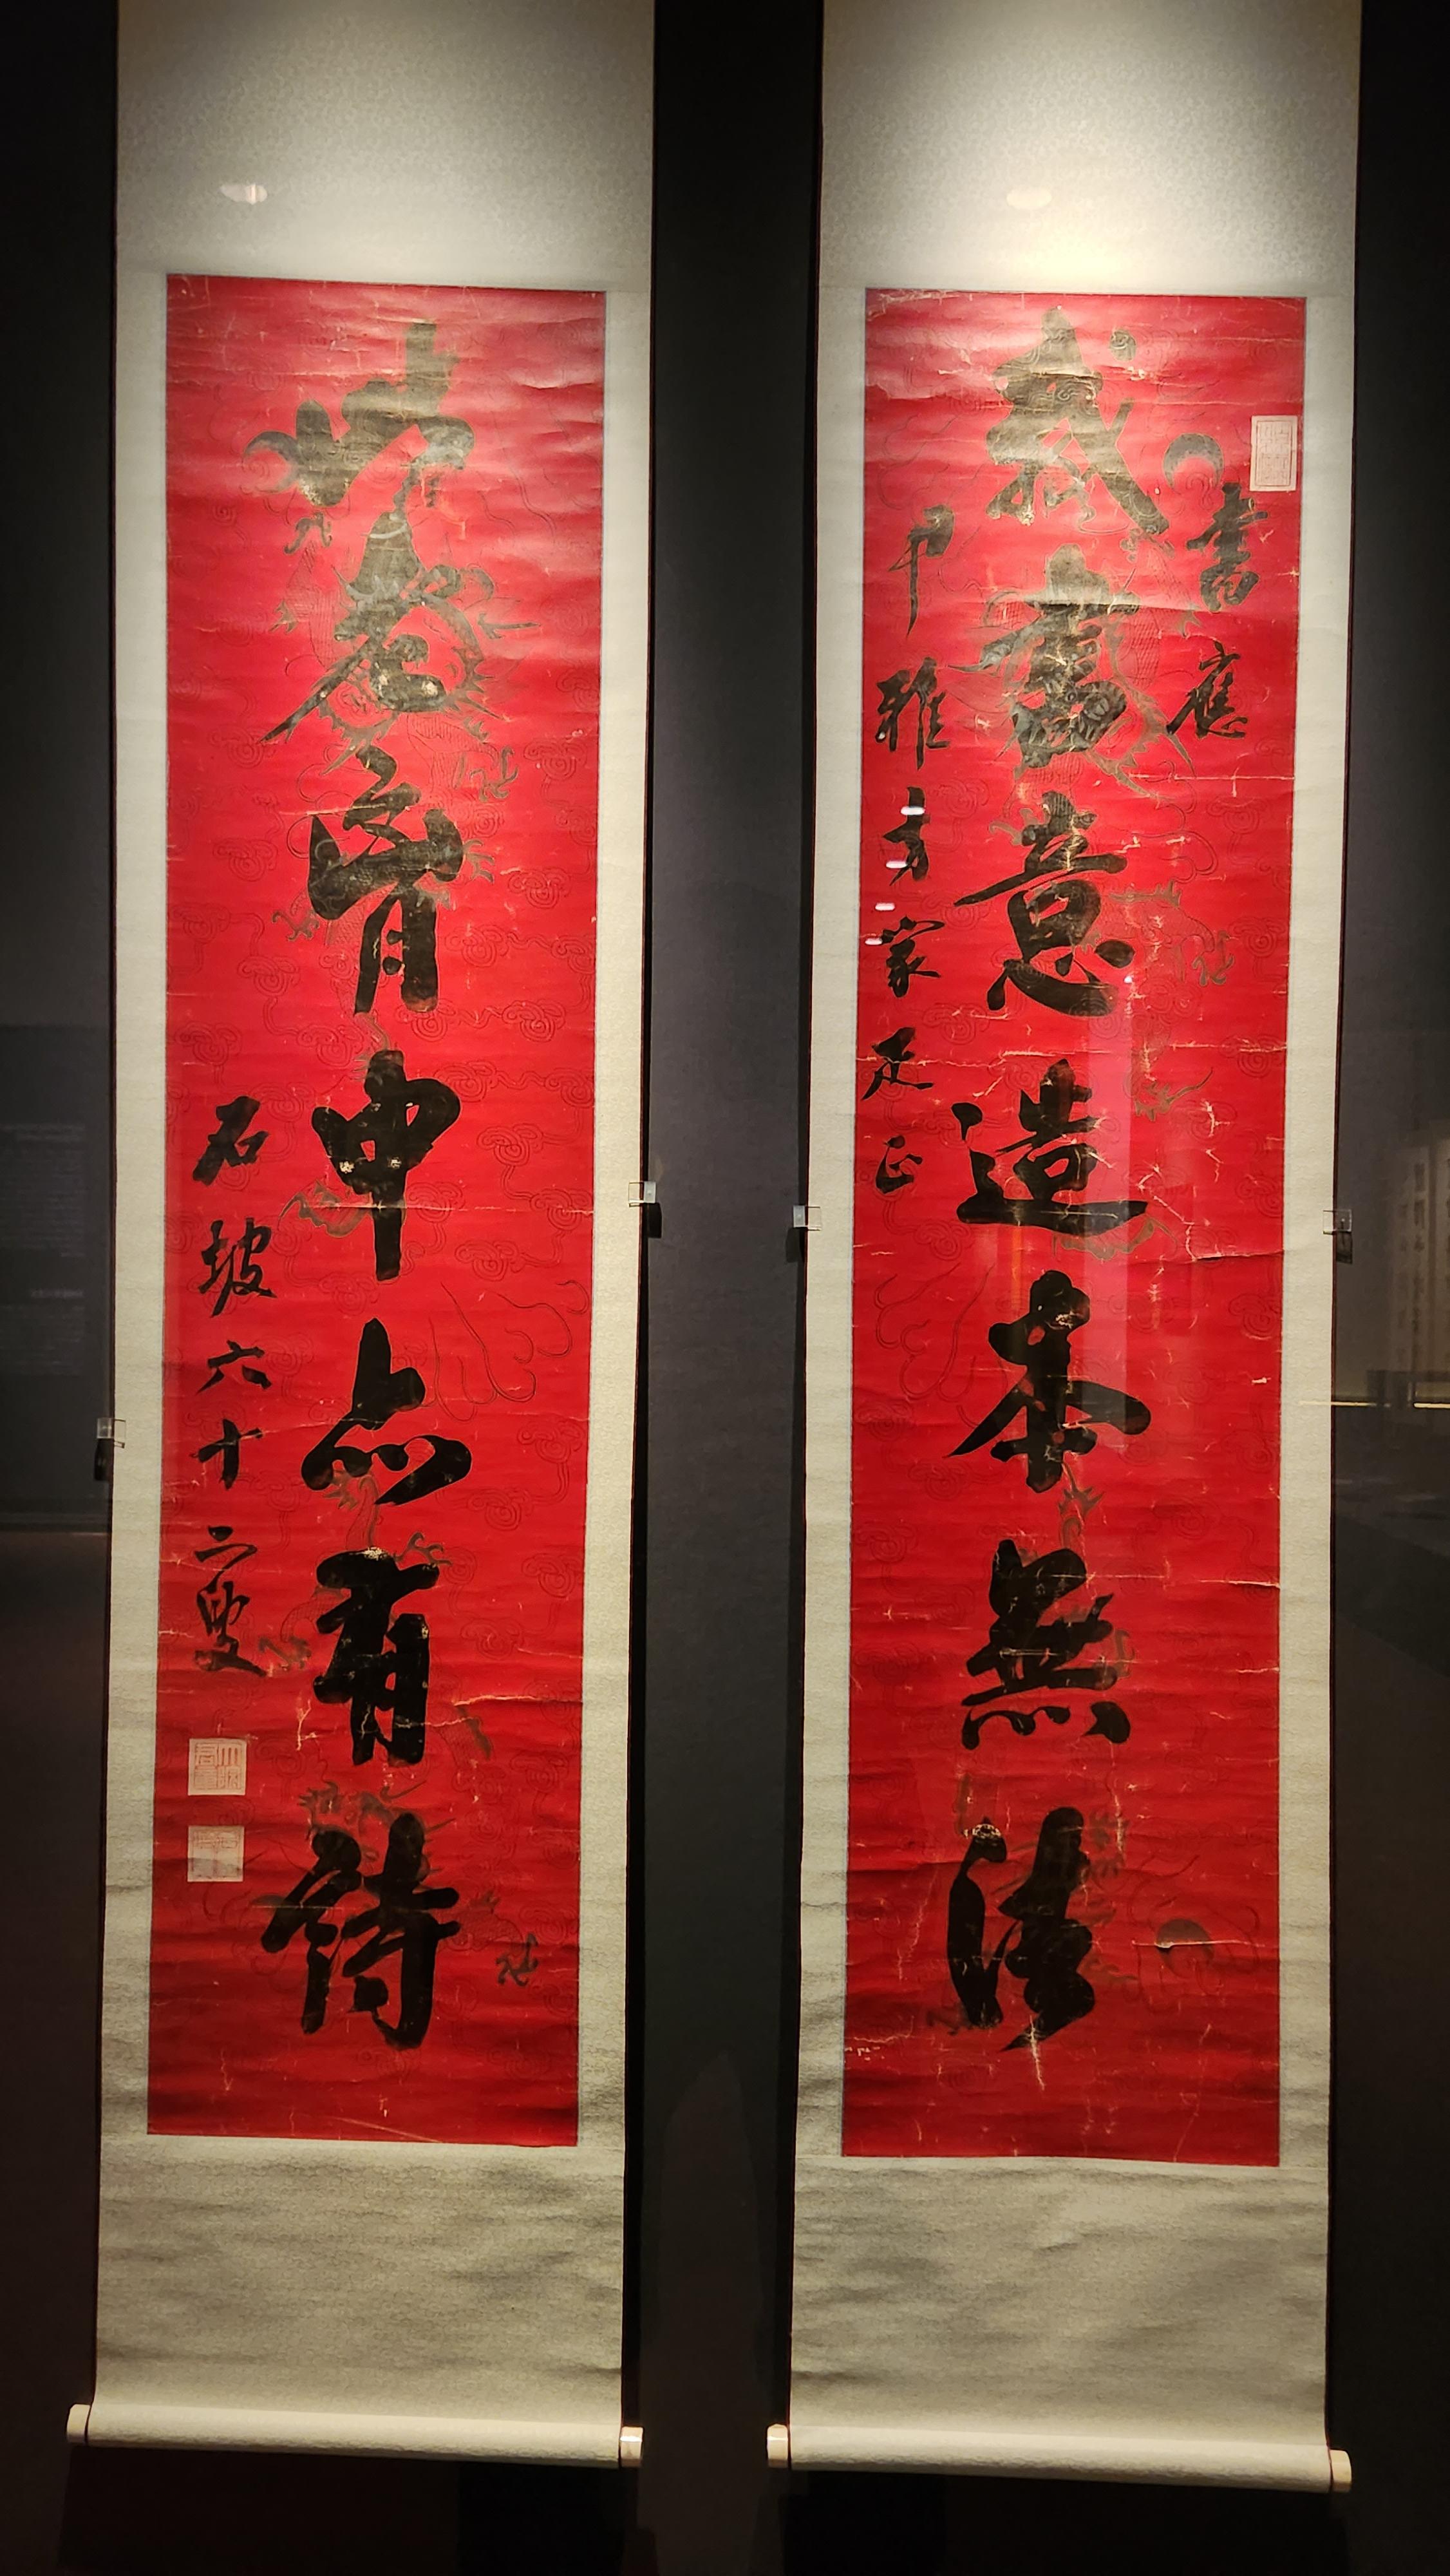 書應
我書意造本無法
尹雅方家疋正
此老胷中亦有詩
石坡六十二叟